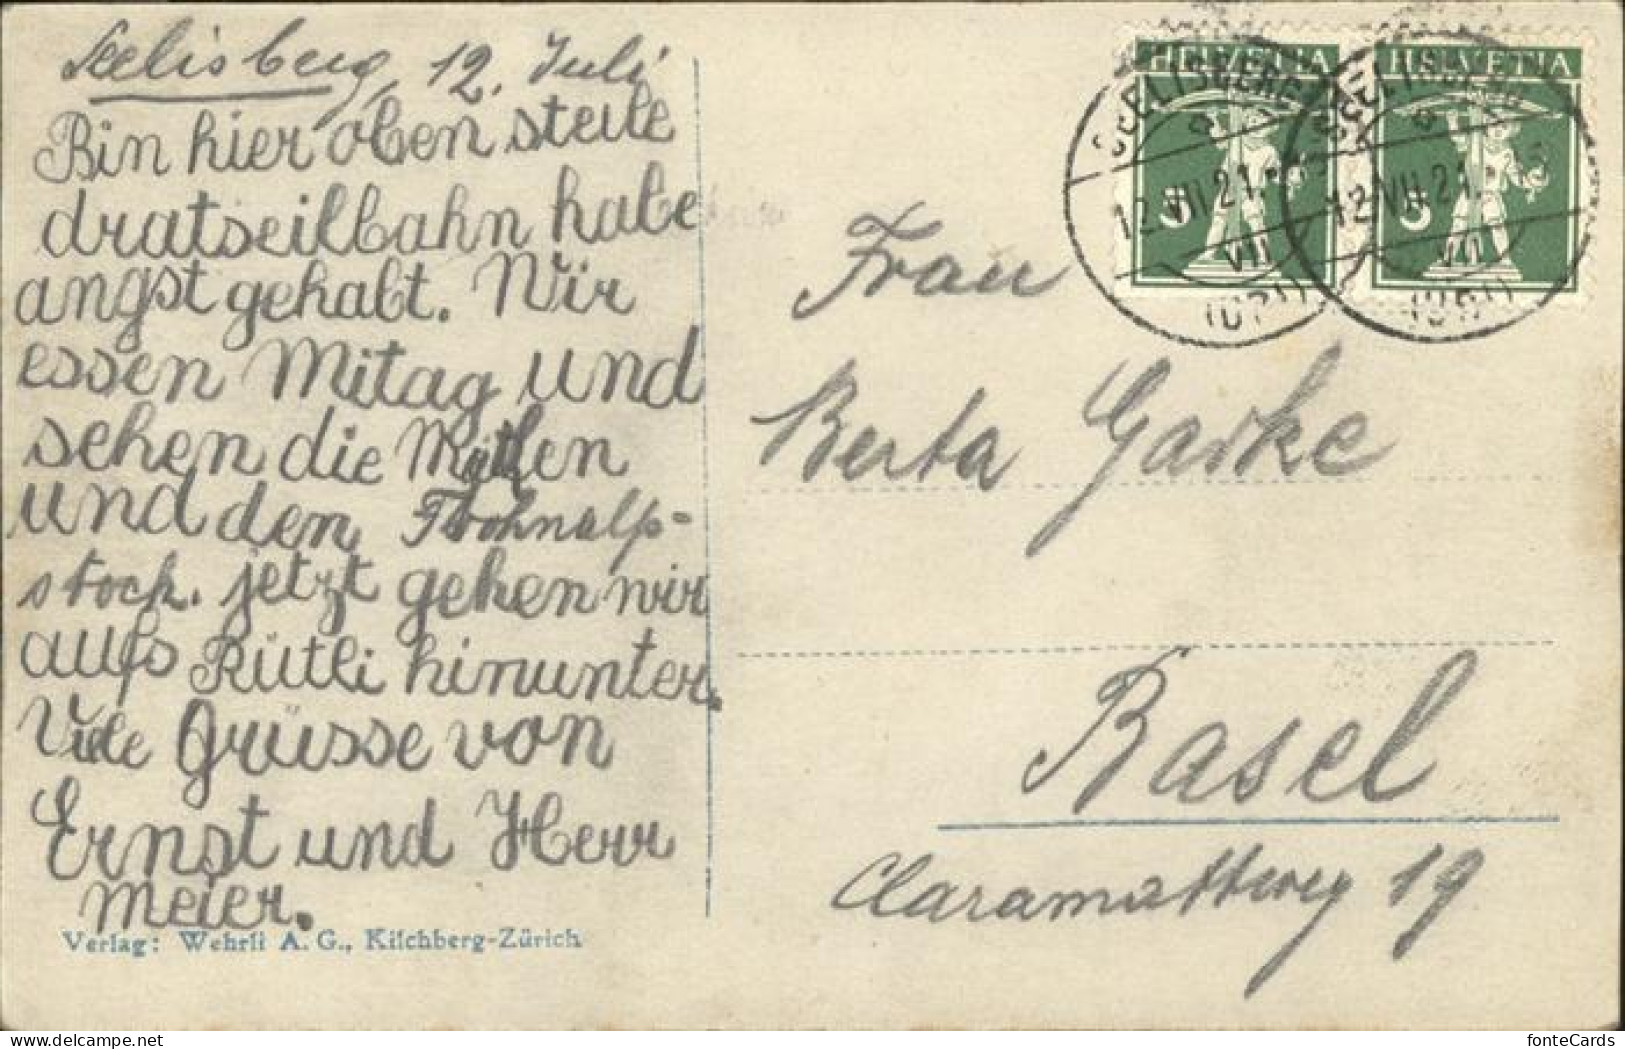 Seelisberg, 12. Juli
Bin hier oben steile
dratseilbahn habe
angst gehabt. Wir
essen Mitag und
sehen die Mythen
und den Frohnalp-
stock. jetzt gehen wir
aufs Rütli hinunter.
Viele Grüsse von
Ernst und Herr
Meier.
Verlag: Wehrli A. G., Kilchberg-Zürich
HELVETIA
HELVETIA
SEELISBERG
12.VII.21.
VII
SEELISBERG
12.VII.21.
VII
Frau
Berta Garke
Basel
Claramattweg 19
fonteCards